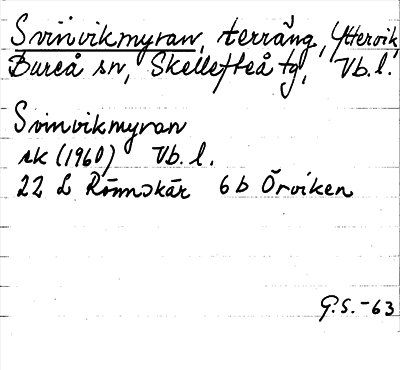 Svinvikmyran, terräng, Yttervik,
Bureå sn, Skellefteå tg, Vb. l.
Svinvikmyran
rk (1960) Vb. l.
22 L Rönnskär 6 b Örviken
G.S. -63